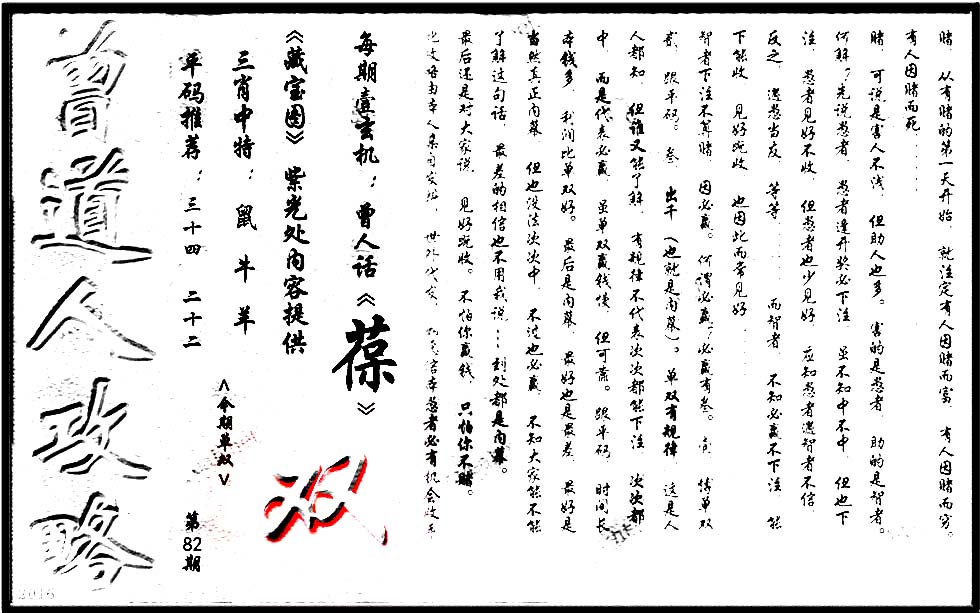 赌，从有赌的第一天开始，就注定有人因赌而富，有人因赌而穷。
有人因赌而死......
赌，可说是害人不浅，但助人也多。害的是愚者，助的是智者。
何解？先说愚者，愚者逢开奖必下注，虽不知中不中，但也下
注，愚者见好不收，但愚者也少见好，应知愚者遇智者不信
反之，遇愚当友，等等......而智者，不知必赢不下注，能
下能收，见好就收，也因此而常见好......
智者下注不算赌，因必赢。何谓必赢？必赢有叁。壹，博单双
贰，跟平码。叁，出千（也就是内幕）。单双有规律，这是人
人都知，但谁又能了解，有规律不代表次次都能下注，次次都
中，而是代表必赢，虽单双赢钱慢，但可靠。跟平码，时间长
本钱多，利润比单双好。最后是内幕，最好也是最差，最好是
当然真正内幕，但也没法次次中，不过也必赢，不知大家能不能
了解这句话，最差的相信也不用我说...到处都是内幕。
最后还是对大家说，见好就收。不怕你赢钱，只怕你不赌。
愚者必有机会收手
每期壹玄机：曾人话《葆》
《藏宝图》紫光处内容提供
三肖中特：鼠 牛 羊
平码推荐：三十四 二十二
<今期单双>
双
第82期
曾道人攻略
2016